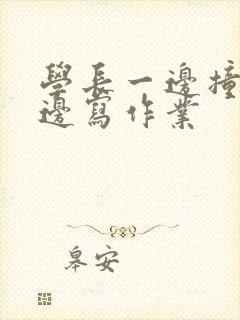 學長一邊撞
邊寫作業
皋安